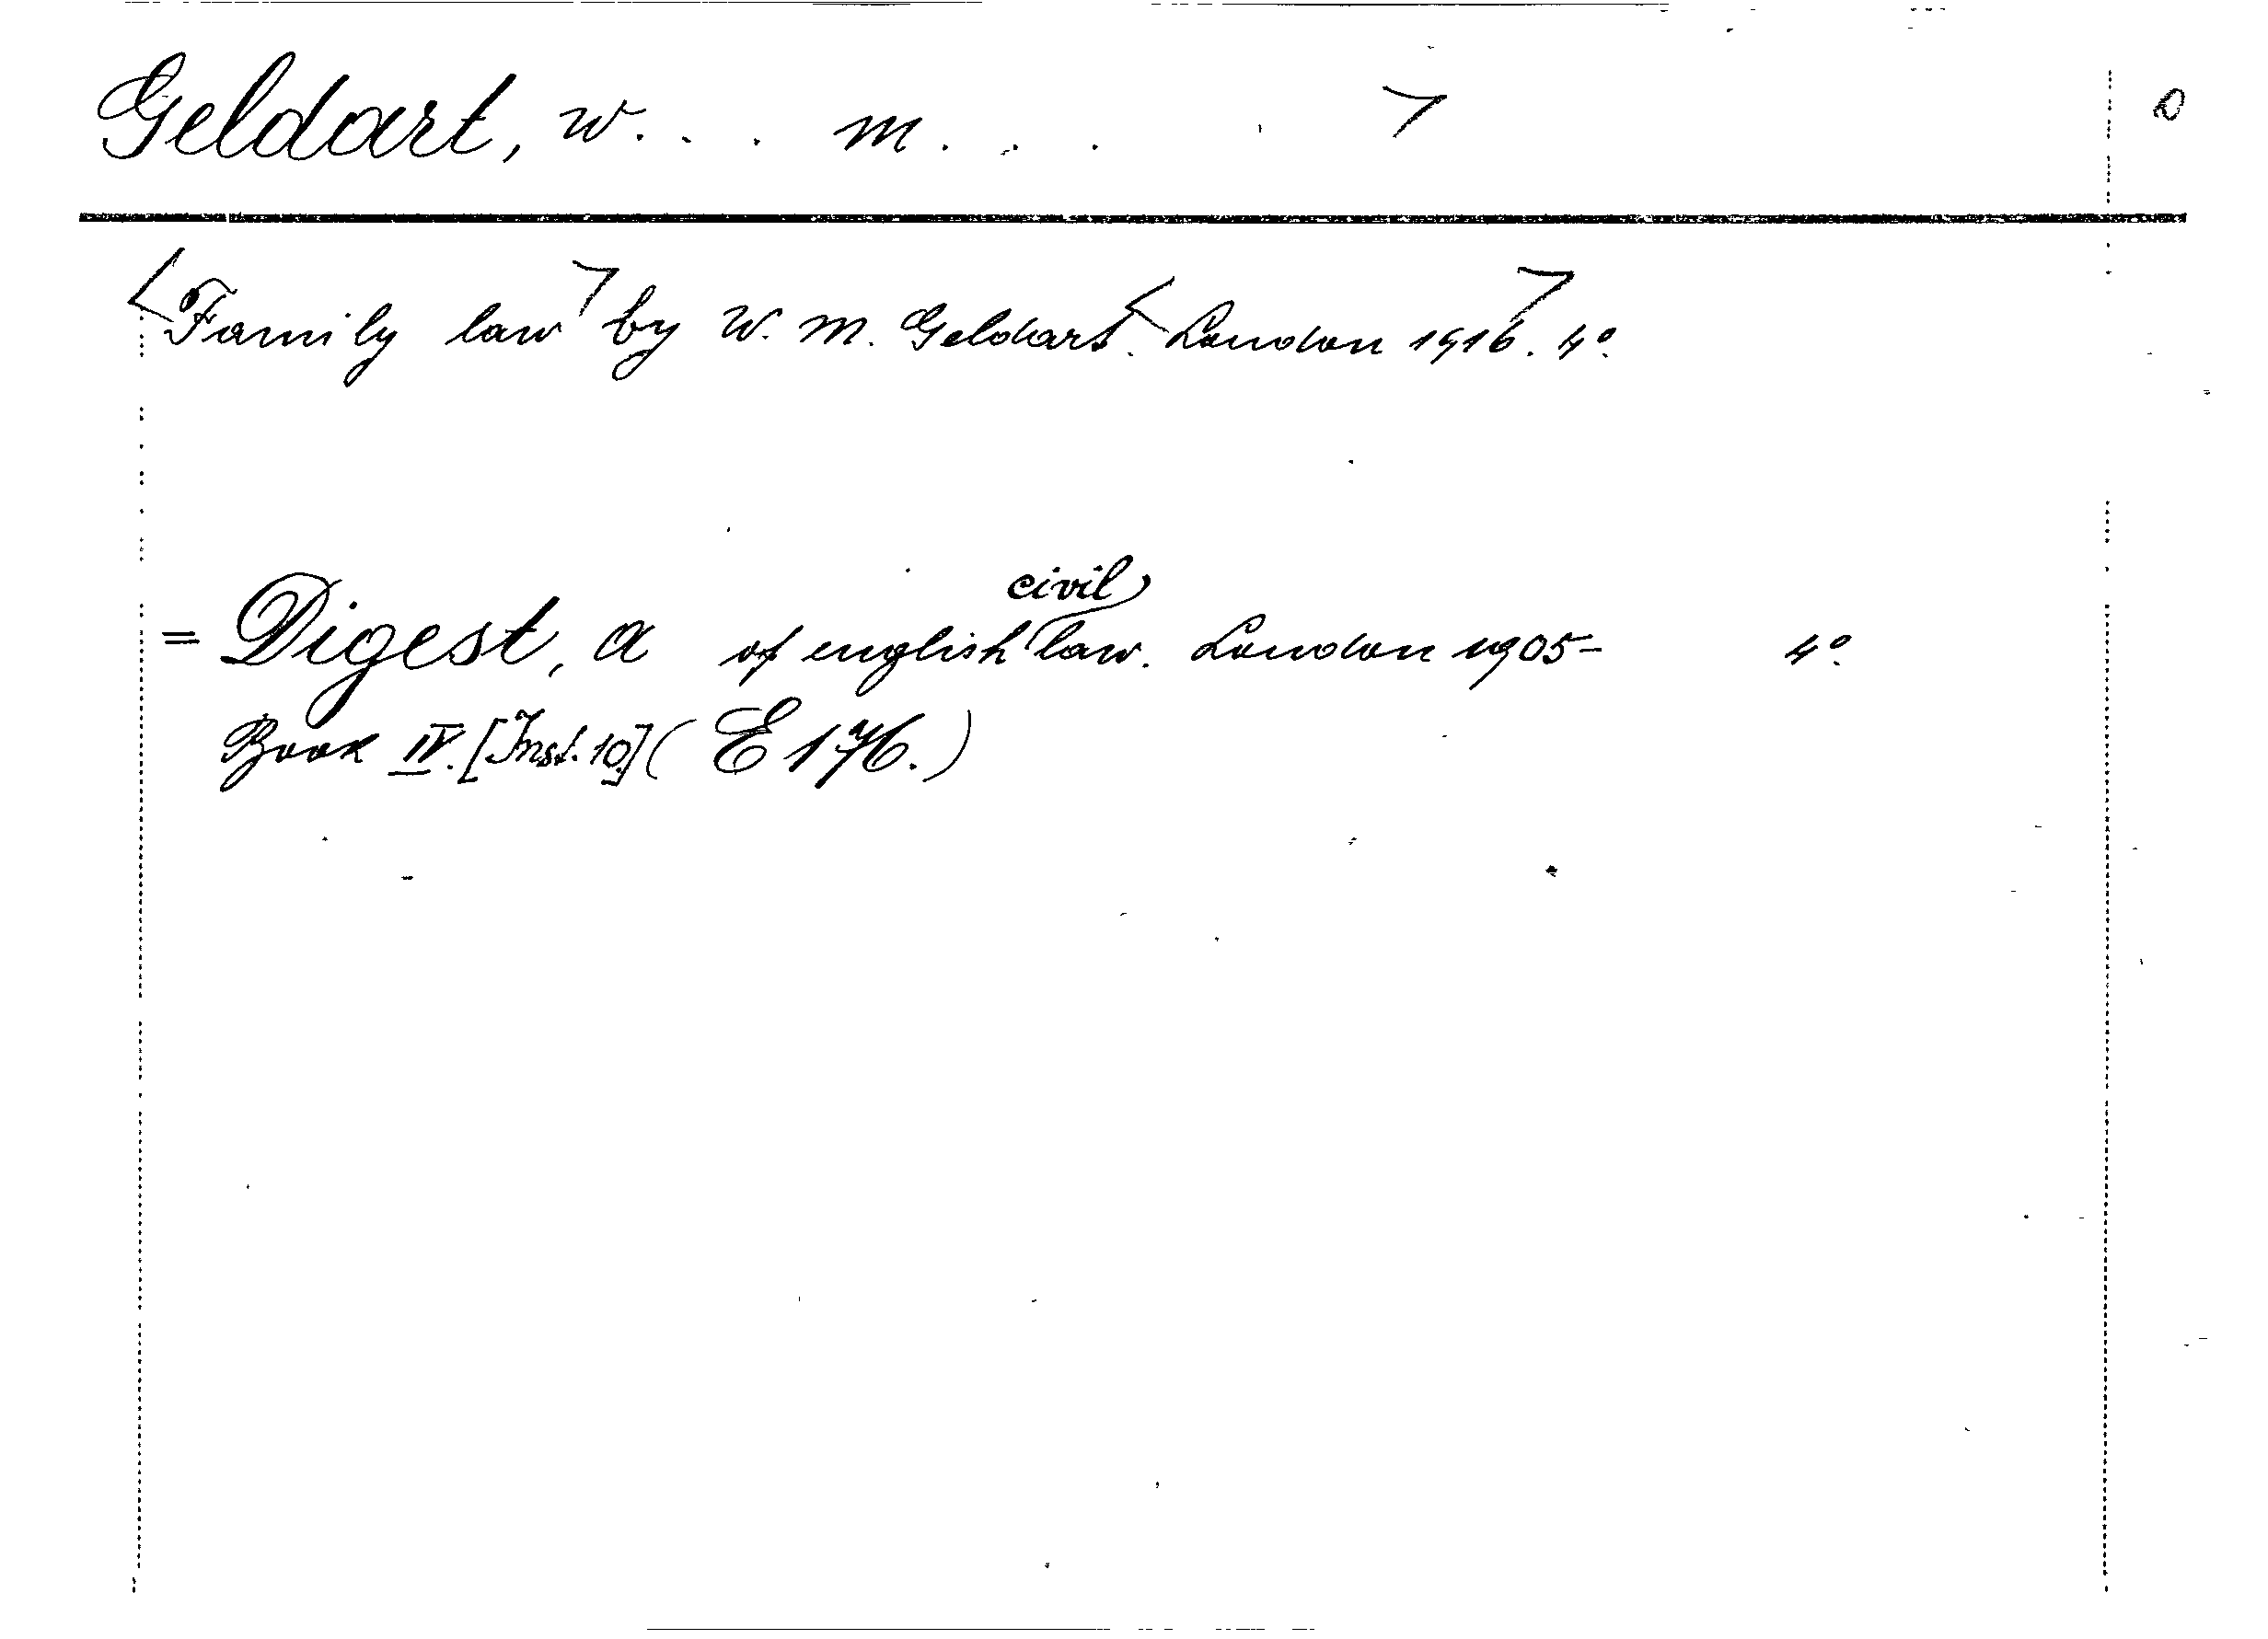 Geldart, W... M...
Family law by W. M. Geldart. London 1916. 4°.
= Digest, a of english civil law. London 1905- 4°.
Book IV. [Inst. 10] (E 176.)